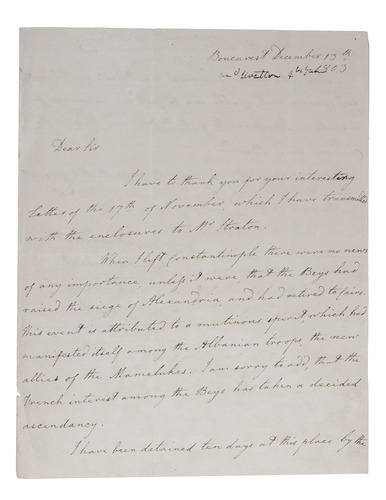 Boucarest December 13th
1803
Dear Sir
I have to thank you for your interesting
Letter of the 17th of November which I have transmitted
with the enclosures to Mr Straton.
When I left Constantinople there were no news
of any importance, unless it were that the Beys had
raised the siege of Alexandria, and had retired to Cairo.
this event is attributed to a mutinous spirit which had
manifested itself among the Albanian troops, the new
allies of the Mamelukes. I am sorry to add, that the
French interest among the Beys has taken a decided
ascendancy.
I have been detained ten days at this place by the